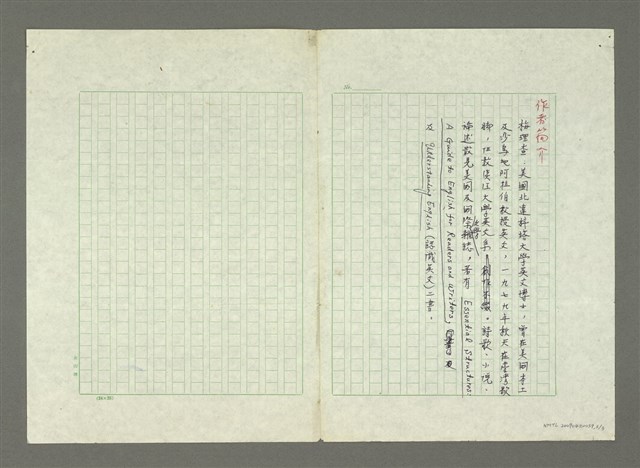 作者簡介
梅理查，美國北達科塔大學英文博士，曾在美國本土
及沙烏地阿拉伯教授英文，一九七九年秋天在臺灣教
師，任教淡江大學英文系，創作不綴。詩歌、小說、
論述散見美國及國際文學雜誌，著有 Essential Structures:
A Guide to English for Readers and Writers,
及 Understanding English (認識英文) 二書。
(24×25)